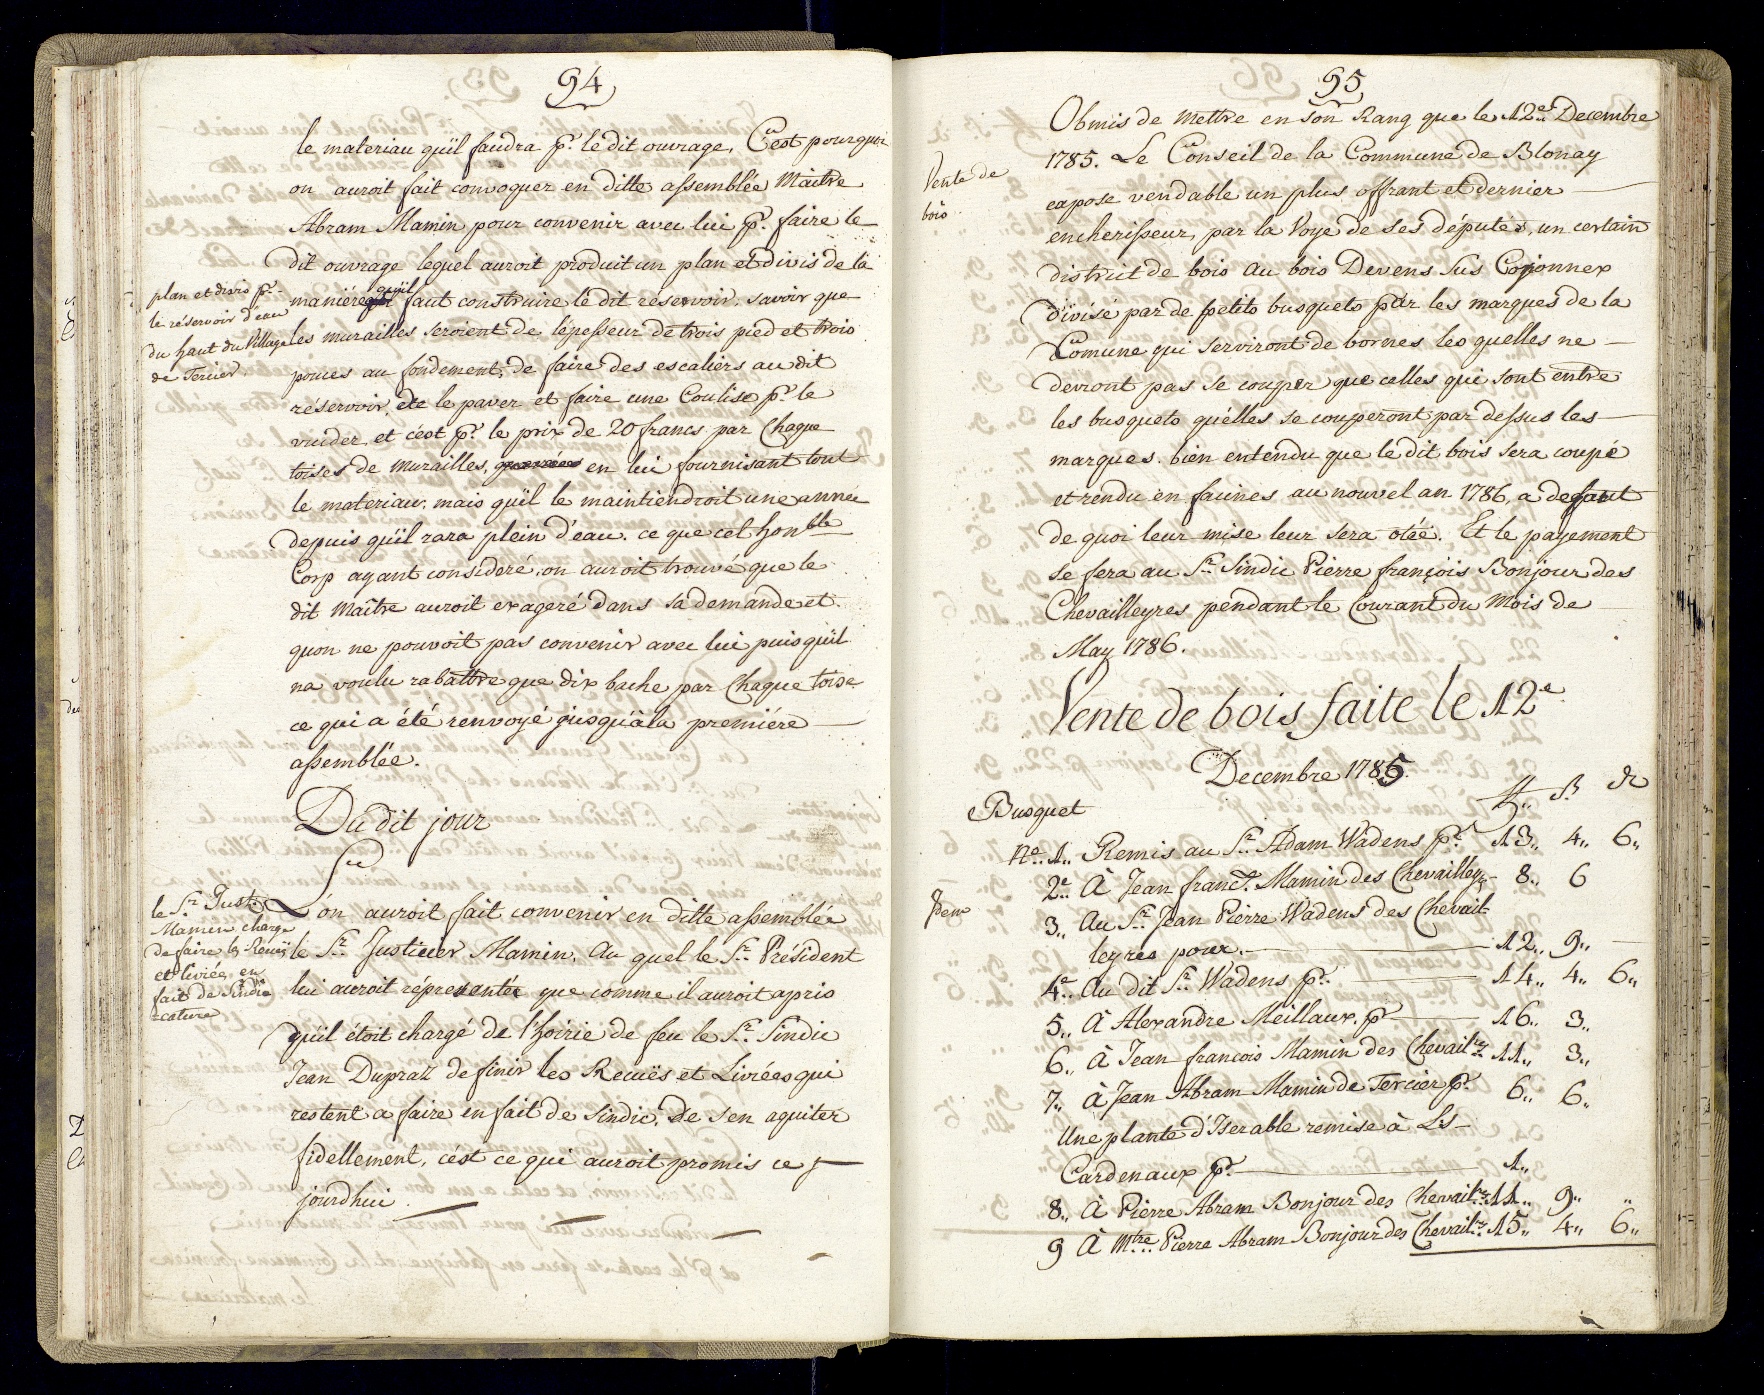 94
le materiau quïl faudra pr. le dit ouvrage, C'est pourquoi
on auroit fait convoquer en ditte assemblée Maitre
Abram Mamin pour convenir avec lui pr. faire le
dit ouvrage lequel auroit produit un plan et divis de la
plan et divis pr.
le réservoir d'eau
du haut du Village
de Tercier
maniére quïl faut construire le dit réservoir, savoir que
les murailles seroient de l'épesseur de trois pied et trois
pouces au fondement, de faire des escaliers au dit
réservoir, de le paver et faire une Coulise pr. le
vuider, et c'est pr. le prix de 20 francs par Chaque
toises de murailles, en lui fournisant tout
le materiau, mais quïl le maintiendroit une année
depuis quïl sara plein d'eau. ce que cet honble
Corp ayant consideré, on auroit trouvé que le
dit Maître auroit exageré dans sa demande et
quon ne pouvoit pas convenir avec lui puisquïl
na voulu rabattre que dix bache par Chaque toise
ce qui a été renvoyé jusqu'à la premiére
assemblée.
Du dit jour
le Sr. Justr.
Mamin charge
de faire les Recuïs
et livrées en
fait de Sindi-
-cature
L'on auroit fait convenir en ditte assemblée
le Sr. Justicier Mamin, Au quel le Sr. Président
lui auroit réprésentée que comme il auroit apris
quïl étoit chargé de l'hoirie de feu le Sr. Sindic
Jean Dupraz de finir les Recuës et Livrées qui
restent a faire en fait de Sindic, de s'en aquiter
fidellement, c'ést ce qui auroit promis ce
jourdhui.
95
Vente de
bois
Obmis de Mettre en son Rang que le 12e Decembre
1785. Le Conseil de la Commune de Blonay
expose vendable un plus offrant et dernier
encherisseur, par la Voye de ses députés, un certain
district de bois au bois Devens sus Cojonnex
divisé par de petits busquets par les marques de la
Comune qui serviront de bornes les quelles ne
devront pas se couper que celles qui sont entre
les busquets qu'elles se couperont par dessus les
marques. bien entendu que le dit bois sera coupé
et rendu en faunes au nouvel an 1786, a defaut
de quoi leur mise leur sera otée. Et le payement
se fera au Sr. Sindic Pierre françois Bonjour des
Chevailleyres pendant le Courant du Mois de
May 1786.
Vente de bois faite le 12e
Decembre 1785.
Busquet
No. 1. Remis au Sr. Adam Wadens pr. 13,, 4,, 6,,
2e À Jean franc. Mamin des Chevailleyr. 8,, 6
Idem
3,, Au Sr. Jean Pierre Wadens des Chevail-
leyres pour. 12,, 9,,
4e Au dit Sr. Wadens pr. 14,, 4,, 6,,
5,, À Alexandre Meillaux pr 16,, 3,,
6,, À Jean françois Mamin des Chevailres 11,, 3,,
7,, À Jean Abram Mamin de Tercier pr. 6,, 6,,
Une plante d'Iserable remise à Ls
Cardenaux pr. 1,,
8,, À Pierre Abram Bonjour des Chevailres 11,, 9,, ,,
9 À Mtre Pierre Abram Bonjour des Chevailres 15,, 4,, 6,,